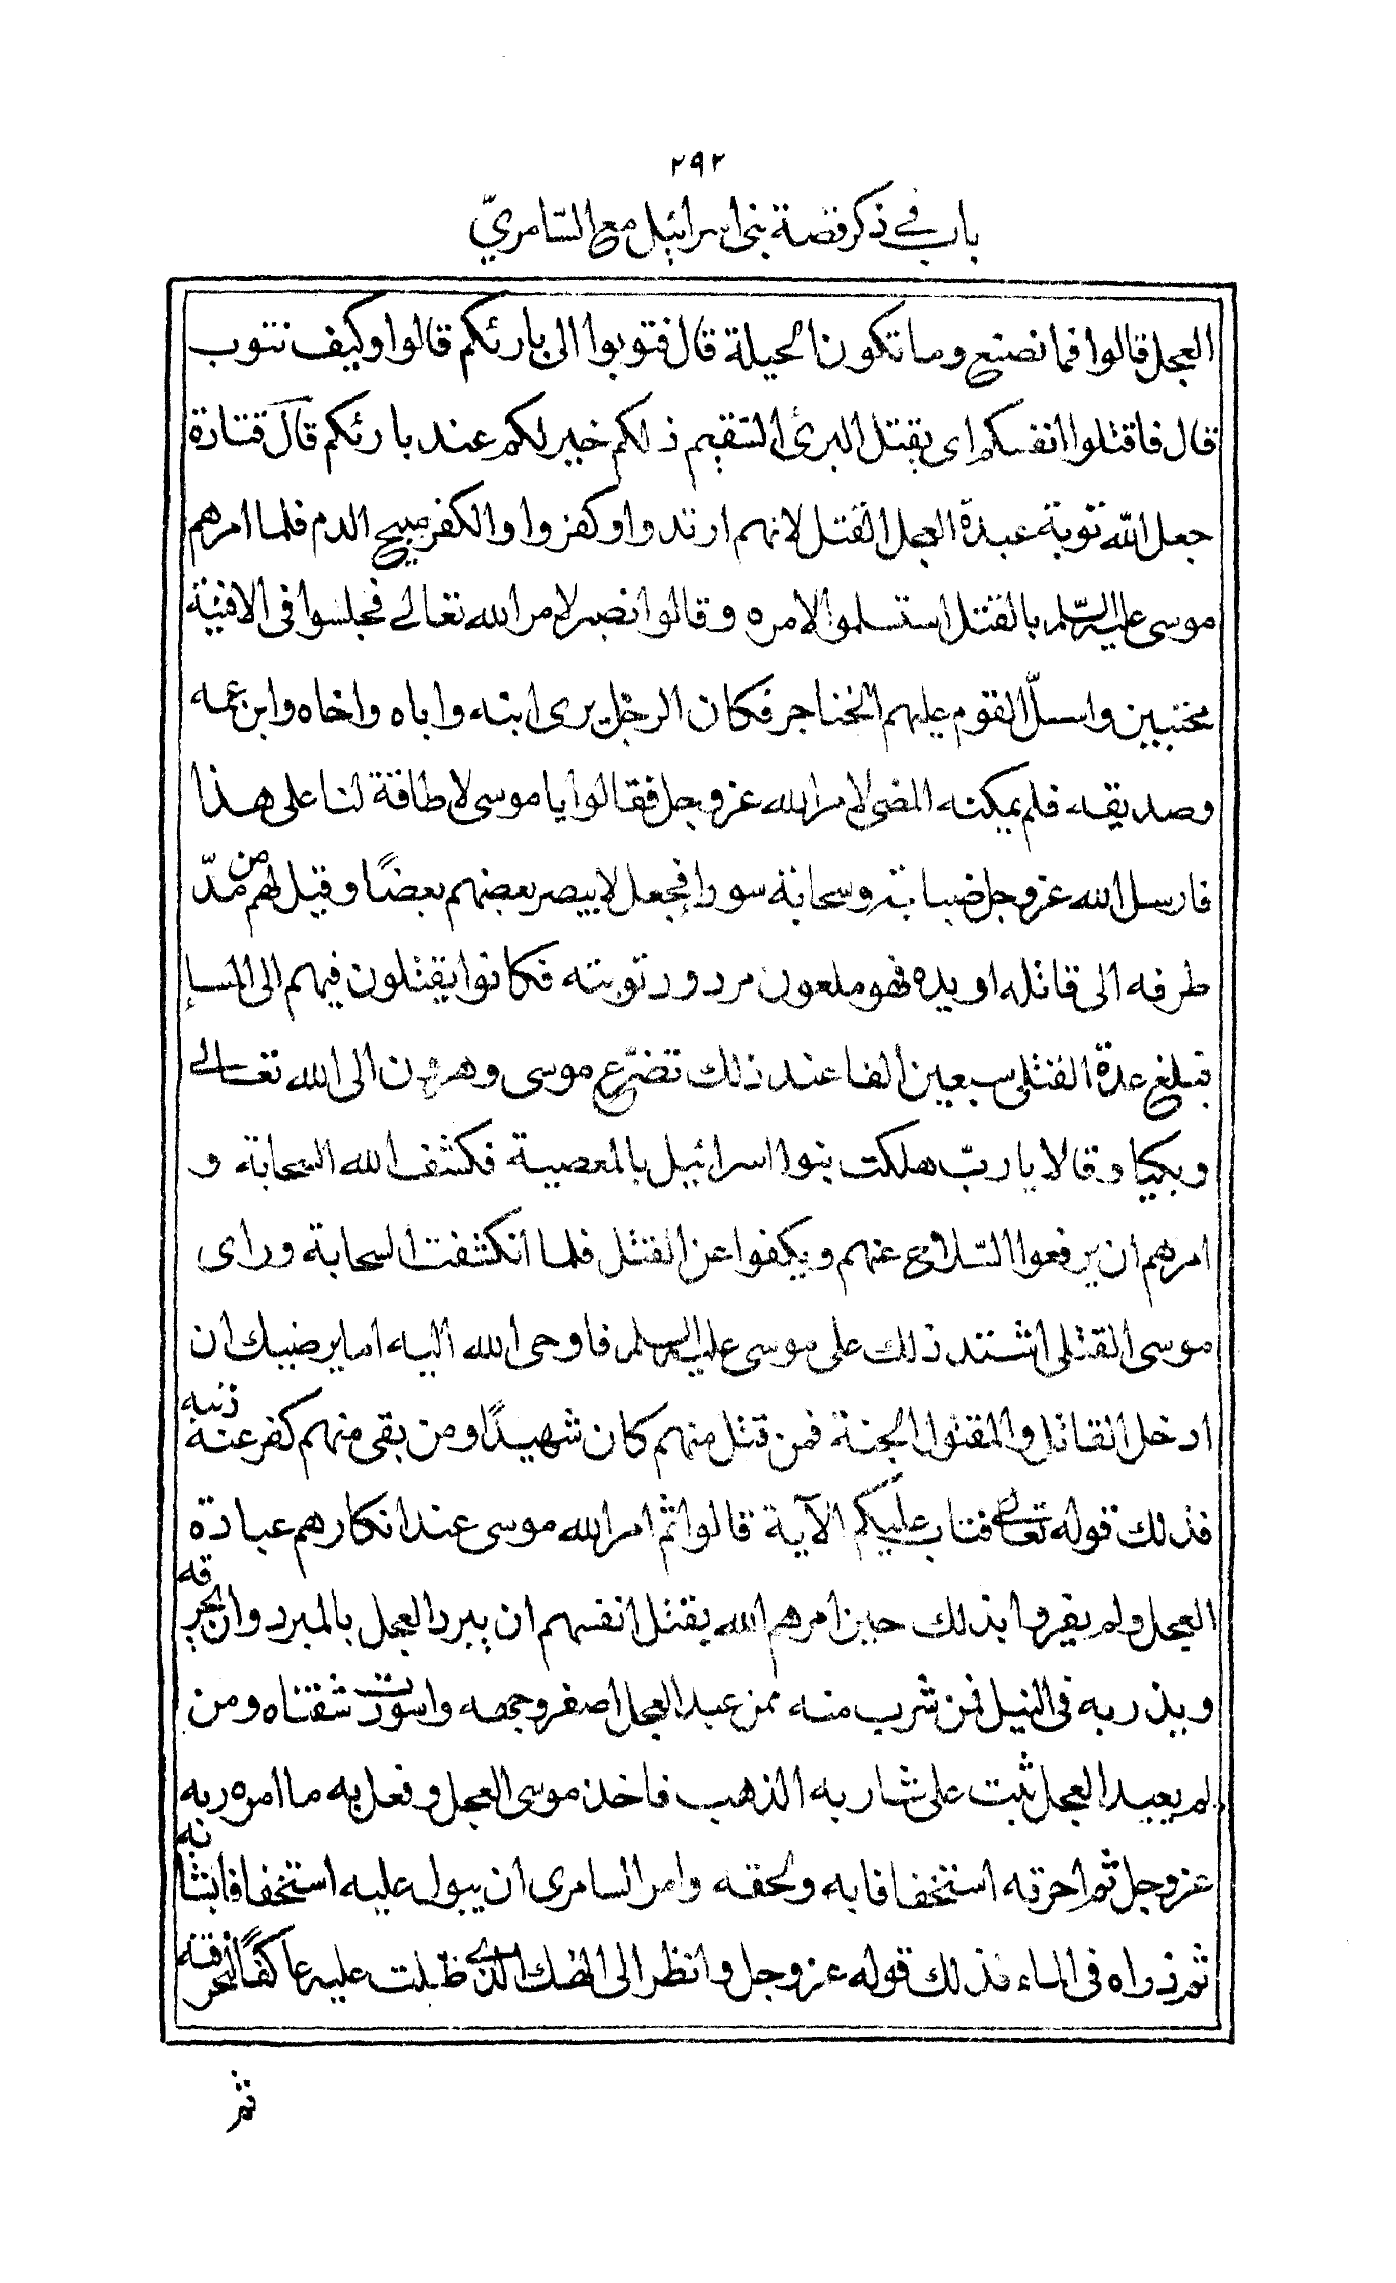 ٢٩٢
باب في ذكر قصة بنى اسرائيل مع السّامريّ
العجل قالوا فما نصنع وما تكون الحيلة قال فتوبوا الى بارئكم قالوا وكيف نتوب
قال فاقتلوا انفسكم اى يقتل البرئ السّقيم ذلكم خير لكم عند بارئكم قال قتادة
جعل الله توبة عبدة العجل القتل لانهم ارتدوا وكفروا والكفر مبيح الدم فلما امرهم
موسى عليه السّلم بالقتل استسلموا لامره وقالوا نصبر لامر الله تعالى فجلسوا فى الافنية
مختبين واسلّ القوم عليهم الخناجر فكان الرجل يرى ابنه واباه واخاه وابن عمه
وصديقه فلم يمكنه المضى لامر الله عز وجل فقالوا يا موسى لا طاقة لنا على هذا
فارسل الله عز وجل ضبابة وسحابة سودا فجعل لا يبصر بعضهم بعضًا وقيل لهم من مدّ
طرفه الى قاتله او يده فهو ملعون مردود توبته فكانوا يقتلون فيهم الى المسا
فبلغ عدة القتلى سبعين الفا عند ذلك تضرّع موسى وهرون الى الله تعالى
وبكيا وقالا يا ربّ هلكت بنوا اسرائيل بالمعصية فكشف الله السحابة و
امرهم ان يرفعوا السّلاح عنهم ويكفوا عن القتل فلما انكشفت السحابة وراى
موسى القتلى اشتد ذلك على موسى عليه السلم فاوحى الله اليه اما يرضيك ان
ادخل القاتل والمقتول الجنة فمن قتل منهم كان شهيدًا ومن بقى منهم كفر عنه ذنبه
فذلك قوله تعالى فتاب عليكم الآية قالوا ثم امر الله موسى عند انكارهم عبادة
العجل ولم يقروا بذلك حين امرهم الله يقتل انفسهم ان يبرد العجل بالمبرد وان يحرقه
ويذر به فى النيل فمن شرب منه ممن عبد العجل اصفر وجهه واسودّت شفتاه ومن
لم يعبد العجل ثبت على شاربه الذهب فاخذ موسى العجل وفعل به ما امره ربه
عز وجل ثم احرته استخفافا به ولحقه وامر السامرى ان يبول عليه استخفافا بشانه
ثم ذراه فى الماء فذلك قوله عز وجل وانظر الى الهك الذى ظلت عليه عاكفًا لنحرقنه
ثم